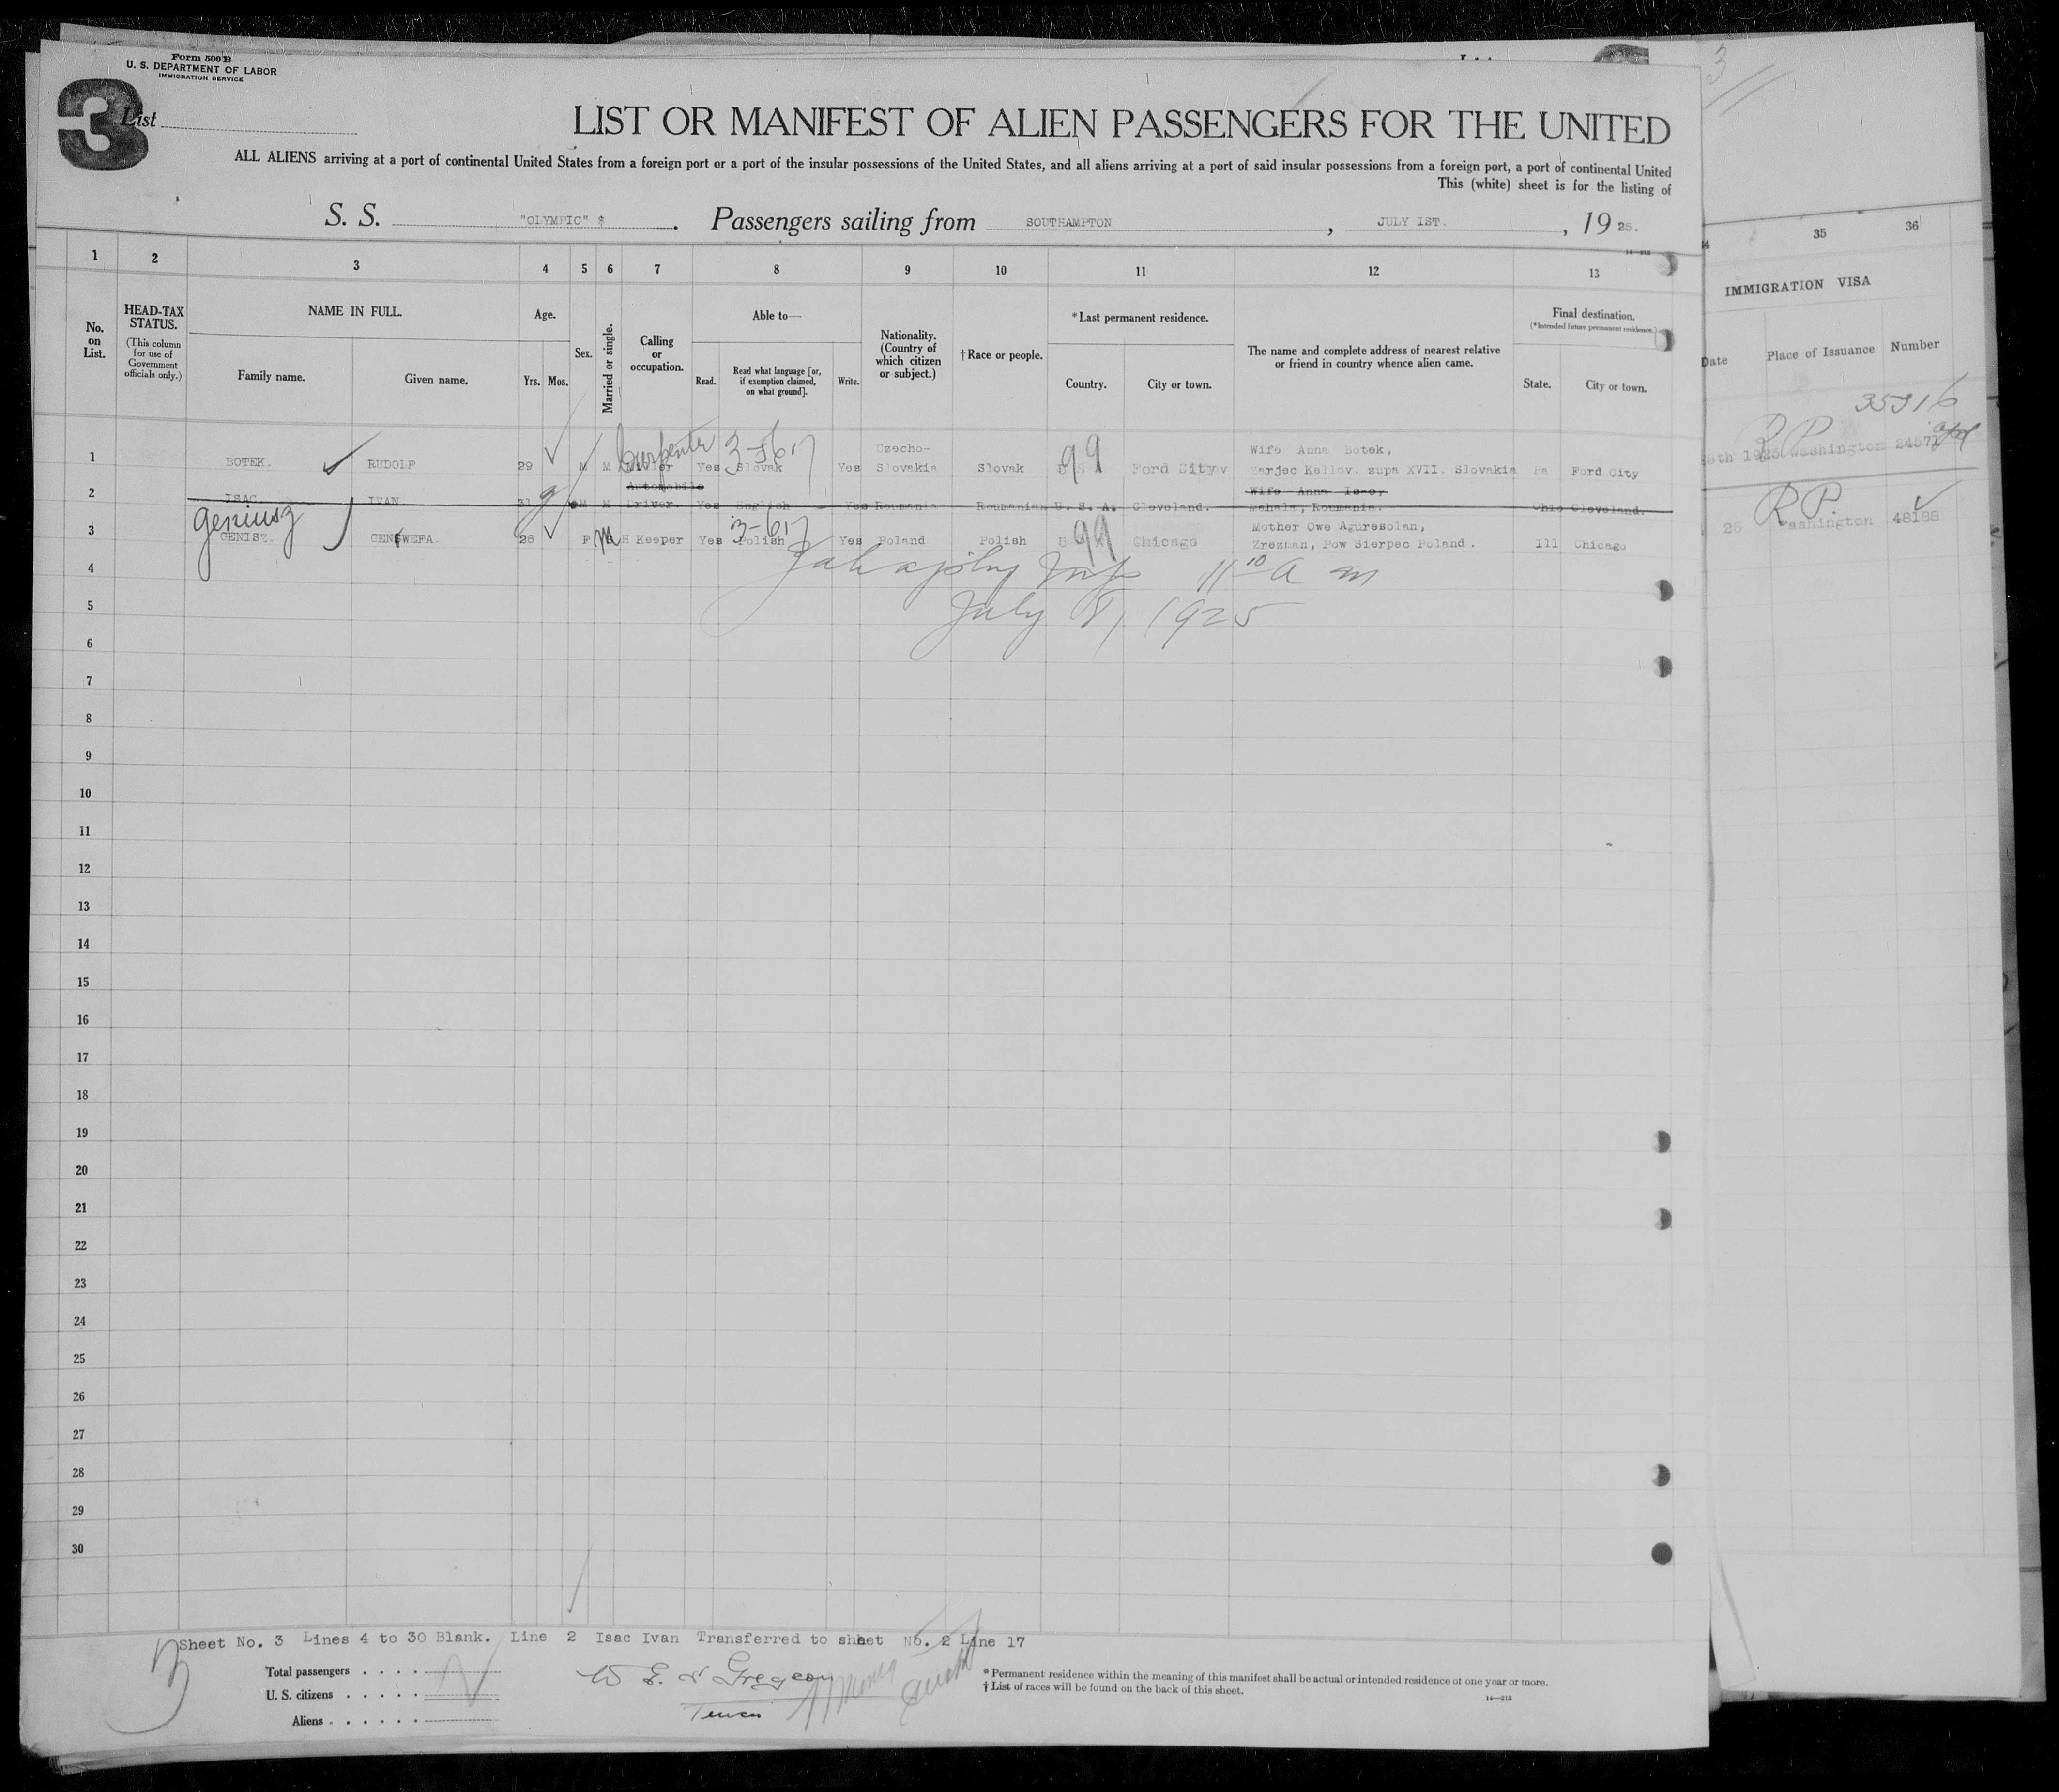 Form 500 B
U. S. DEPARTMENT OF LABOR
IMMIGRATION SERVICE
3
List
LIST OR MANIFEST OF ALIEN PASSENGERS FOR THE UNITED
ALL ALIENS arriving at a port of continental United States from a foreign port or a port of the insular possessions of the United States, and all aliens arriving at a port of said insular possessions from a foreign port, a port of continental United
This (white) sheet is for the listing of
S. S. "OLYMPIC" $. Passengers sailing from SOUTHAMPTON, JULY 1ST., 1925.
1 2 3 4 5 6 7 8 9 10 11 12 13
No. on List.
HEAD-TAX STATUS.
(This column for use of Government officials only.)
NAME IN FULL.
Family name. Given name.
Age.
Yrs. Mos.
Sex.
Married or single.
Calling or occupation.
Able to—
Read. Read what language [or, if exemption claimed, on what ground]. Write.
Nationality. (Country of which citizen or subject.)
† Race or people.
*Last permanent residence.
Country. City or town.
The name and complete address of nearest relative or friend in country whence alien came.
Final destination.
(*Intended future permanent residence.)
State. City or town.
35 36
IMMIGRATION VISA
Date Place of Issuance Number
35916
Carpenter
Czecho-
Wife Anna Botek,
1 BOTEK. RUDOLF 29 M M Yes Slovak Yes Slovakia Slovak 99 Ford City Kellov. zupa XVII. Slovakia Pa Ford City
8th 1925 Washington
Automobile
Wife Anna
2 ISAC IVAN 31 M M Driver. Yes English Yes Roumania Roumanian U. S. A. Cleveland. Mahala, Roumania. Ohio Cleveland.
Geniusz
Mother Owe Aguresolan,
3 GENISZ. GENEWEFA. 26 F M H Keeper Yes Polish Yes Poland Polish 99 Chicago Zrezman, Pow Sierpec Poland. Ill Chicago
R P. Washington 48188
11 10 A m
July 8, 1925
4
5
6
7
8
9
10
11
12
13
14
15
16
17
18
19
20
21
22
23
24
25
26
27
28
29
30
Sheet No. 3 Lines 4 to 30 Blank. Line 2 Isac Ivan Transferred to sheet No. 2 Line 17
Total passengers
U. S. citizens
Aliens
* Permanent residence within the meaning of this manifest shall be actual or intended residence of one year or more.
† List of races will be found on the back of this sheet.
14—212